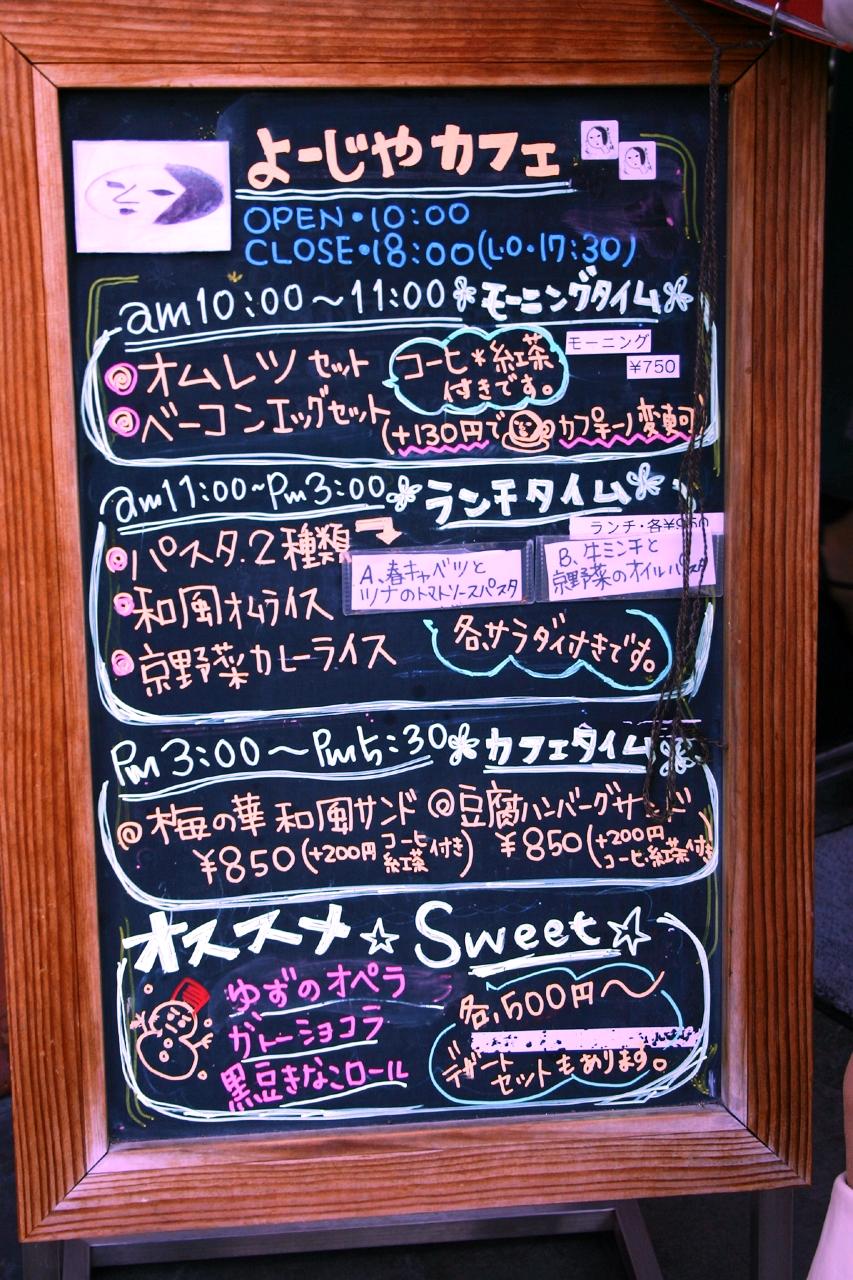 よーじやカフェ
OPEN・10:00
CLOSE・18:00(L.O・17:30)
am10:00～11:00 モーニングタイム
モーニング
¥750
オムレツセット
コーヒ＊紅茶
付きです。
ベーコンエッグセット
(+130円で カプチーノ変更可
am11:00～Pm3:00 ランチタイム
ランチ・各¥950
パスタ.2種類
A、春キャベツと
ツナのトマトソースパスタ
B、牛ミンチと
京野菜のオイルパスタ
和風オムライス
京野菜カレーライス
各、サラダ付きです。
Pm3:00～Pm5:30 カフェタイム
@梅の華 和風サンド
¥850(+200円 コーヒ 紅茶 付き)
@豆腐ハンバーグサンド
¥850(+200円
コーヒ・紅茶付き)
オススメ☆Sweet☆
ゆずのオペラ
ガトーショコラ
黒豆きなこロール
各、500円～
デザート
セットもあります。